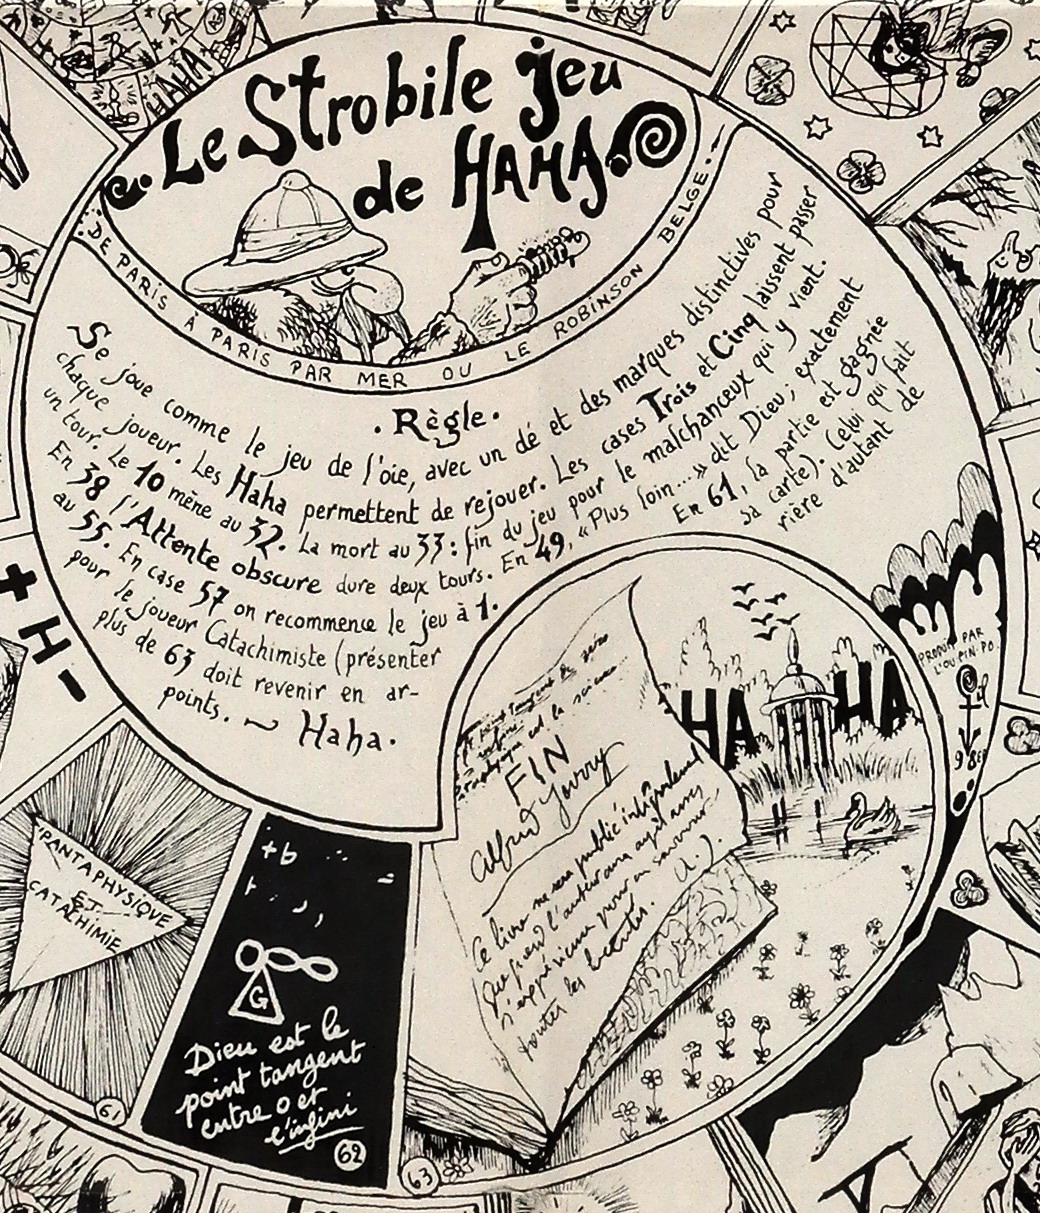 HAHA
Le Strobile jeu
de HAHA
DE PARIS À PARIS PAR MER OU LE ROBINSON BELGE
. Règle .
Se joue comme le jeu de l'oie, avec un dé et des marques distinctives pour
chaque joueur. Les Haha permettent de rejouer. Les cases Trois et Cinq laissent passer
un tour. Le 10 mène au 32. La mort au 33 : fin du jeu pour le malchanceux qui y vient.
En 38 l'Attente obscure dure deux tours. En 49, « Plus loin... » dit Dieu ; exactement
au 55. En case 57 on recommence le jeu à 1. En 61, la partie est gagnée
pour le joueur Catachimiste (présenter sa carte). Celui qui fait
plus de 63 doit revenir en arrière d'autant de
points. Haha.
+ H -
HA HA
PRODUIT PAR
L'OU.PIN.PO.
FIN
Alfred Jarry
Ce livre ne sera publié intégralement
que quand l'auteur aura acquis assez
d'expérience pour en savourer
toutes les beautés. A. J.
PANTAPHYSIQUE
ET
CATACHIMIE
61
+b
G
Dieu est le
point tangent
entre 0 et
l'infini
62
63